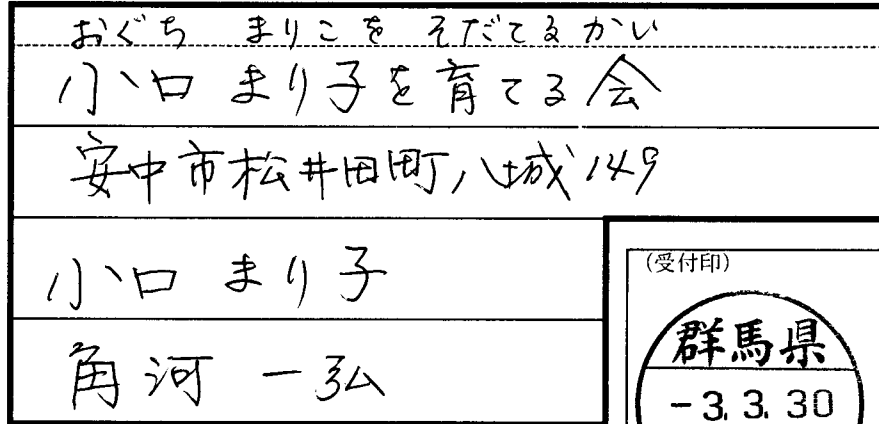 おぐち まりこを そだてるかい
小口 まり子を育てる会
安中市松井田町八城149
小口 まり子
角河 一弘
(受付印)
群馬県
-3.3.30